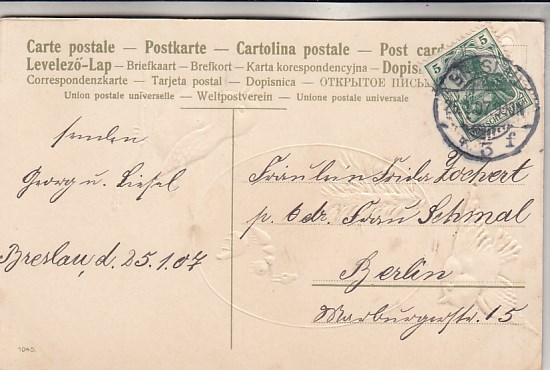 Carte postale — Postkarte — Cartolina postale — Post card
Levelező-Lap — Briefkaart — Brefkort — Karta korespondencyjna — Dopis
Correspondenzkarte — Tarjeta postal — Dopisnica — ОТКРЫТОЕ ПИСЬМО
Union postale universelle — Weltpostverein — Unione postale universale
5 5
BRES
5 f
senden
Georg u. Liesel
Breslau, d. 25.1.07
Fräulein Frida Zochert
p. adr. Frau Schmal
Berlin
Marburgerstr. 15
1045.